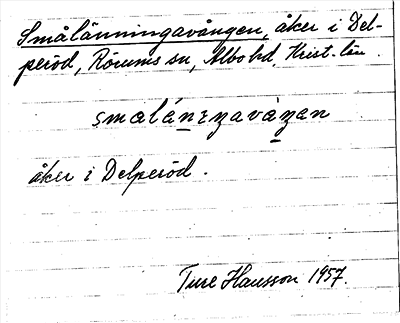 Smålänningavången, åker i Del-
peröd, Rörums sn, Albo hd, Krist. län.
åker i Delperöd.
Ture Hansson 1957.